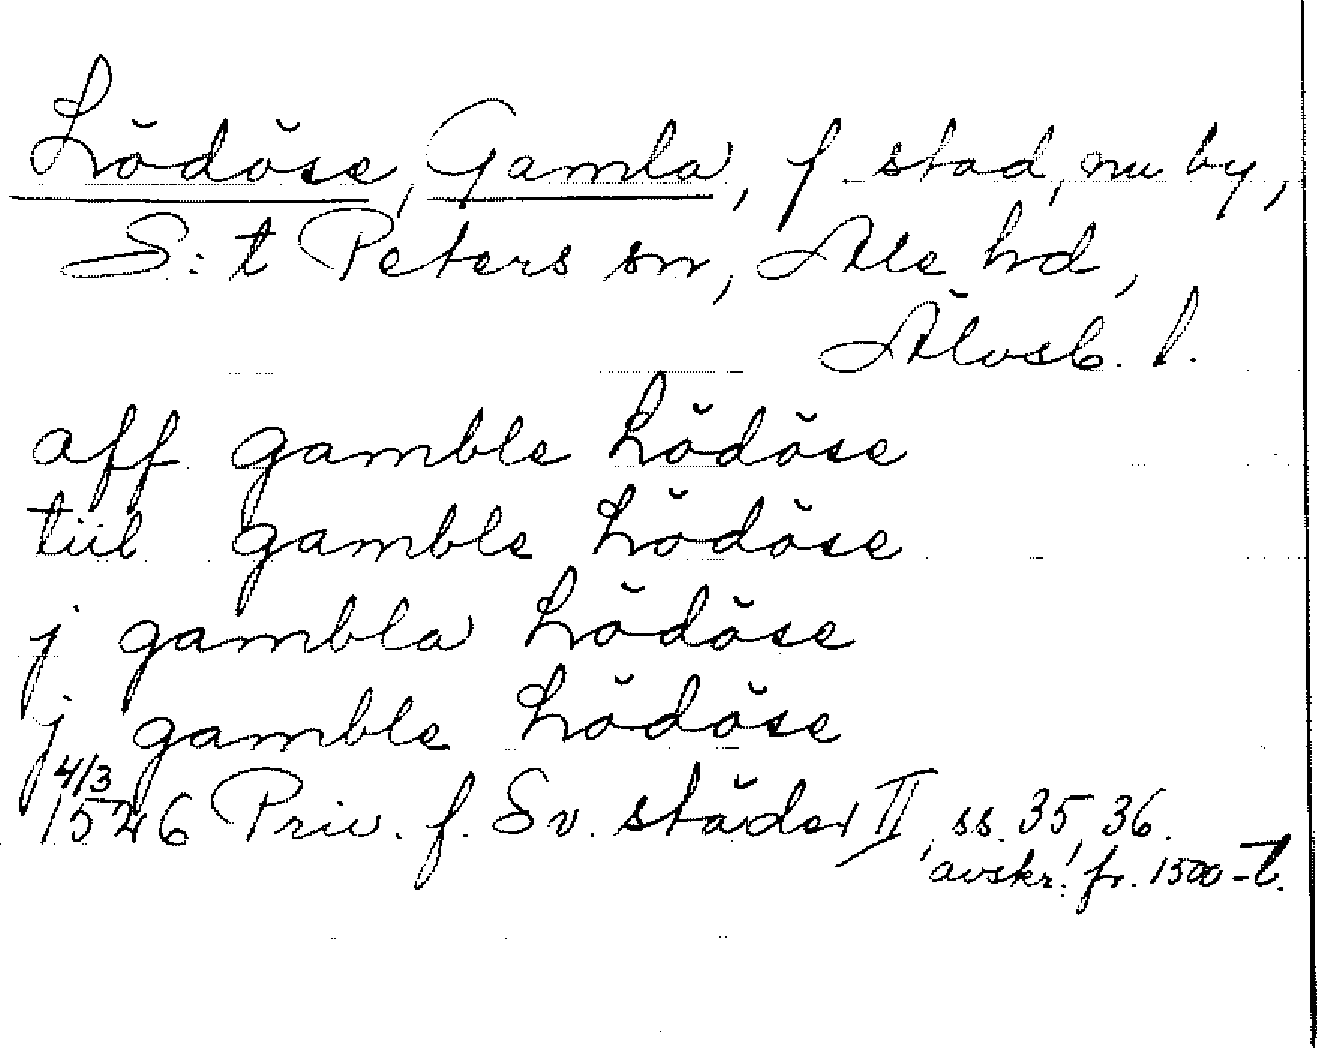 Lödöse, Gamla, f stad, nu by,
S:t Peters sn, Ale hd,
Älvsb. l.
aff gamble Lödöse
tiil gamble Lödöse
j gambla Lödöse
j gamble Lödöse
4/3
1526 Priv. f. Sv. städer II, ss. 35, 36.
avskr. fr. 1500-t.